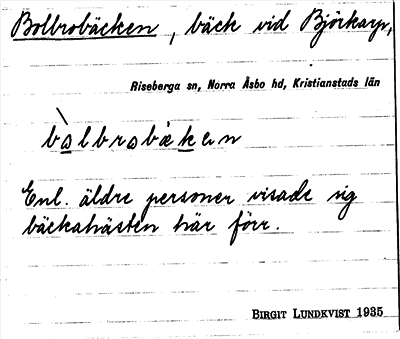 Bolbrobäcken, bäck vid Björkaryr,
Riseberga sn, Norra Åsbo hd, Kristianstads län
bòlbrobäken
Enl. äldre personer visade sig
bäckahästen här förr.
BIRGIT LUNDKVIST 1935